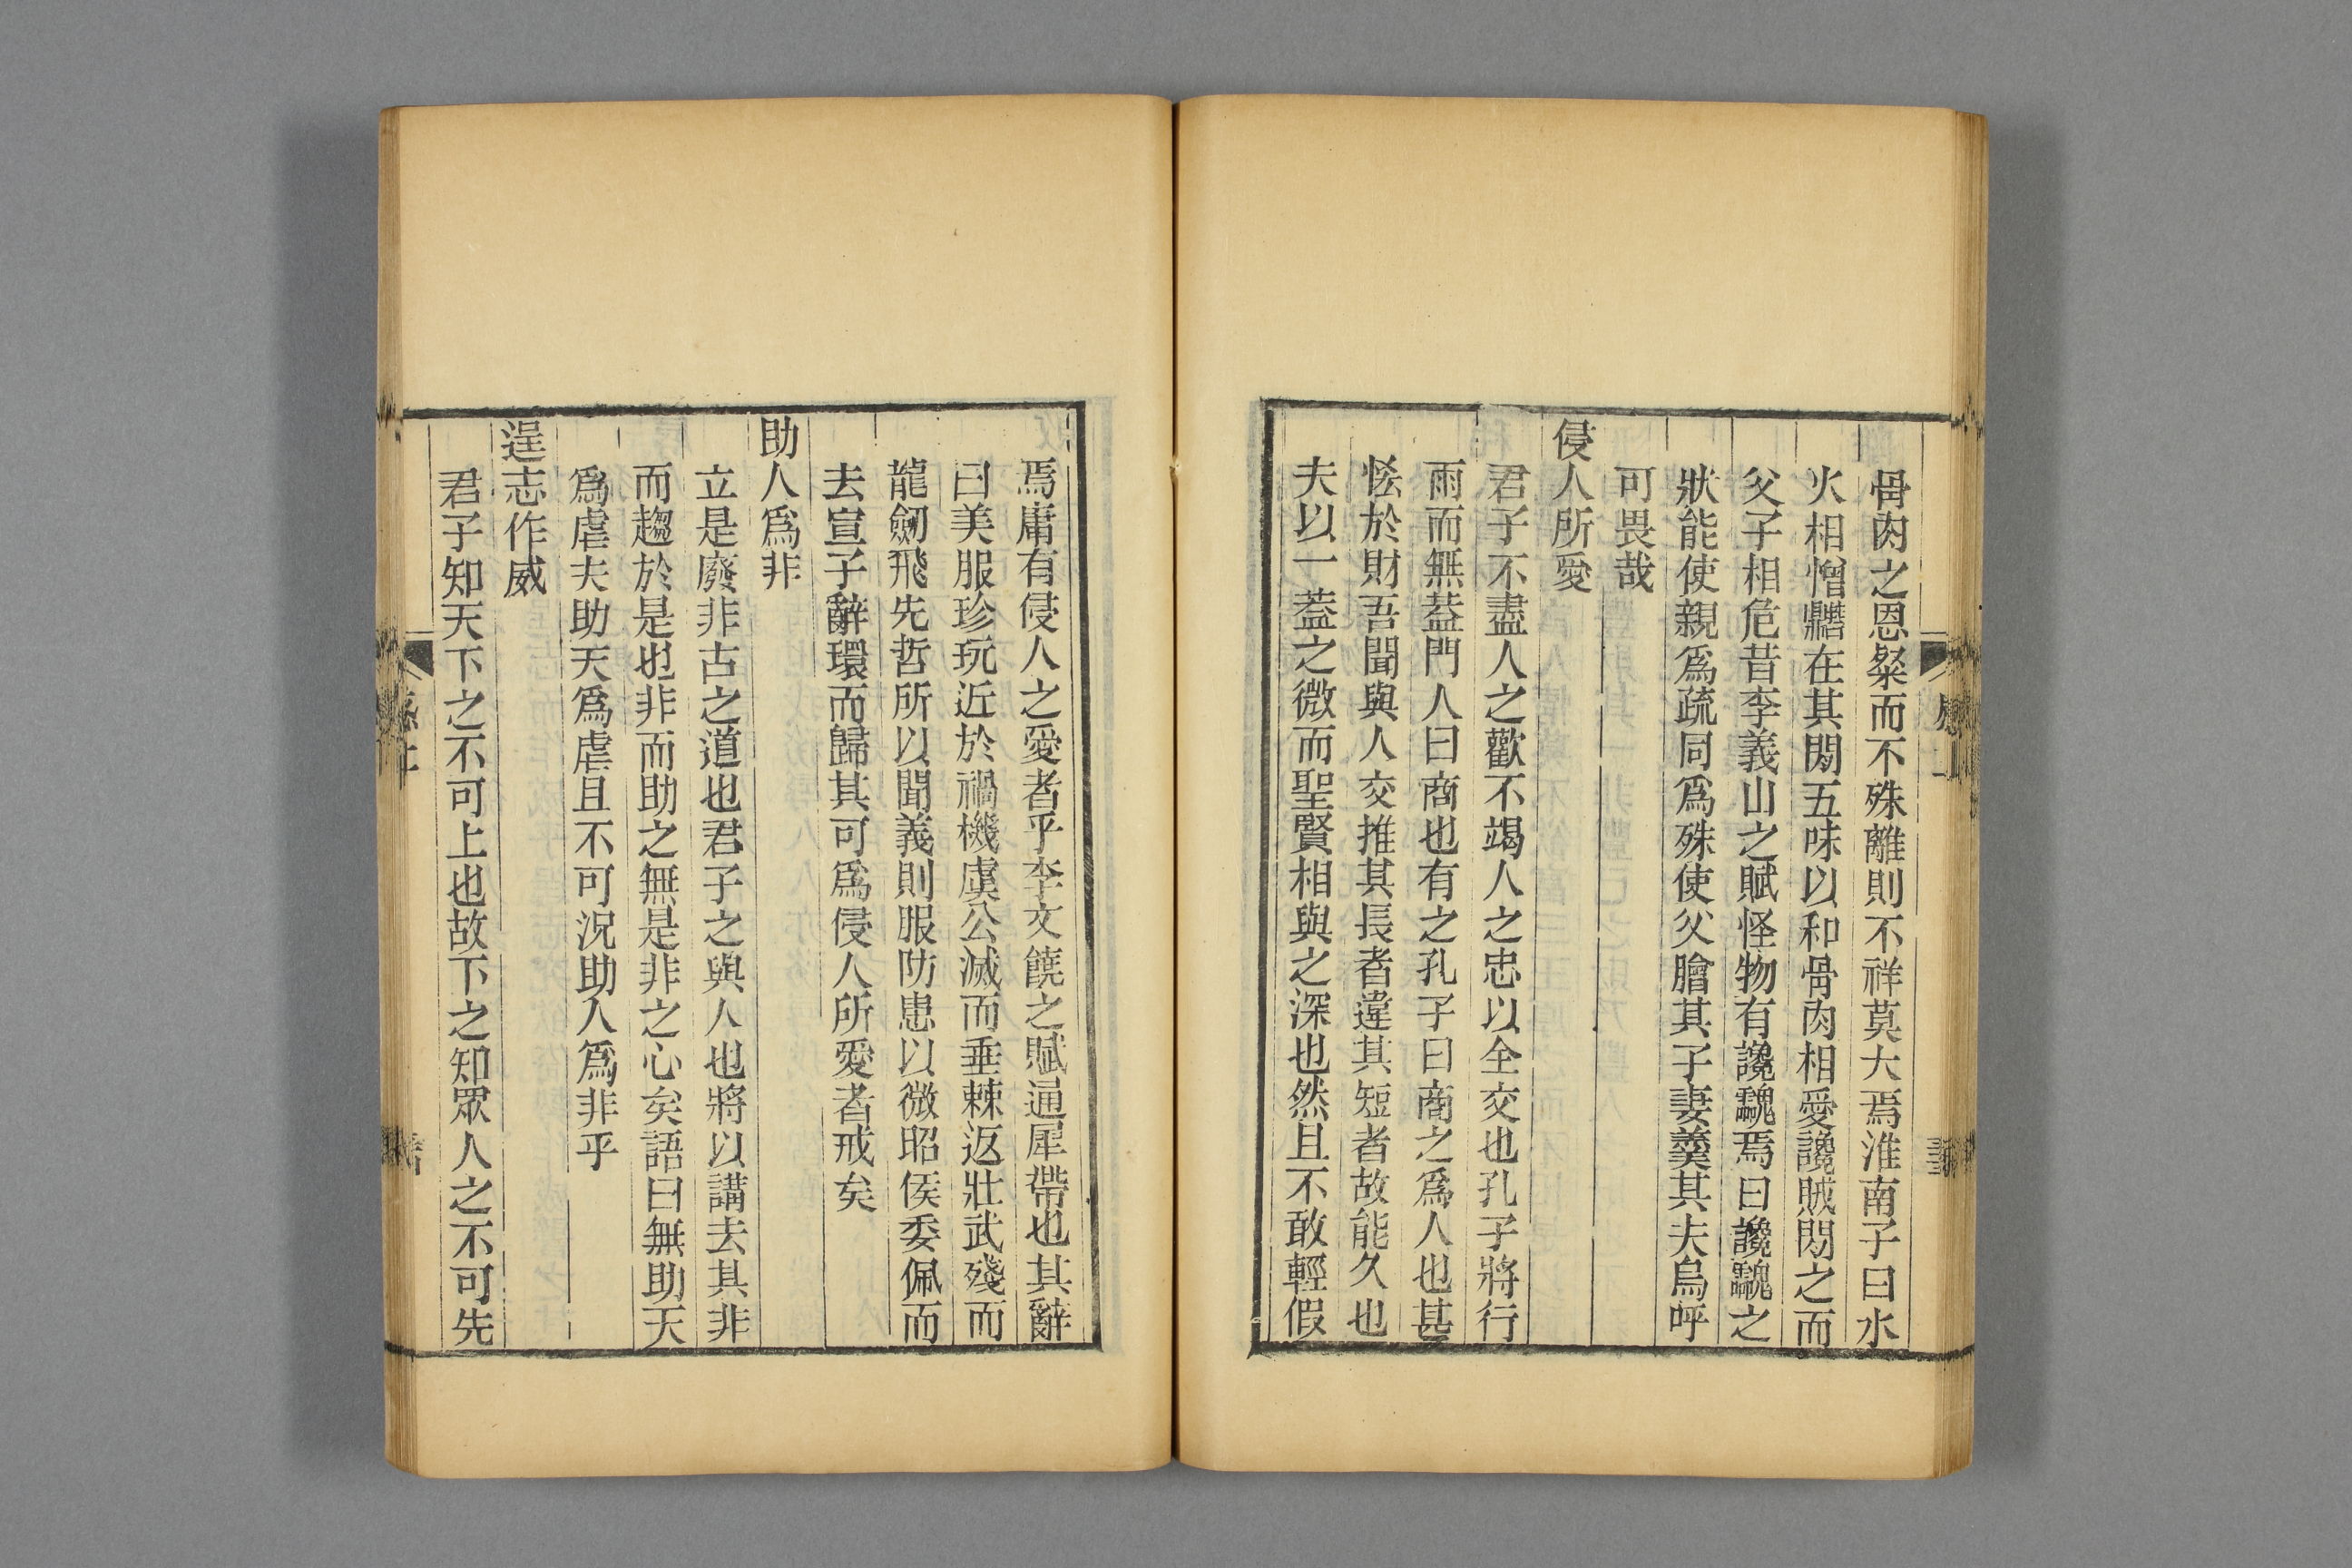 骨肉之恩粲而不殊離則不祥莫大焉淮南子曰水
火相憎䵻在其閒五味以和骨肉相愛讒賊閒之而
父子相危昔李義山之賦怪物有讒䰰焉曰讒䰰之
狀能使親爲疏同爲殊使父膾其子妻羹其夫烏呼
可畏哉
侵人所愛
君子不盡人之歡不竭人之忠以全交也孔子將行
雨而無葢門人曰商也有之孔子曰商之爲人也甚
恡於財吾聞與人交推其長者違其短者故能久也
夫以一葢之微而聖賢相與之深也然且不敢輕假
焉庸有侵人之愛者乎李文饒之賦通犀帶也其辭
曰美服珍玩近於禍機虞公滅而垂棘返壯武殘而
龍劒飛先哲所以聞義則服防患以微昭侯委佩而
去宣子辭環而歸其可爲侵人所愛者戒矣
助人爲非
立是廢非古之道也君子之與人也將以講去其非
而趨於是也非而助之無是非之心矣語曰無助天
爲虐夫助天爲虐且不可況助人爲非乎
逞志作威
君子知天下之不可上也故下之知眾人之不可先